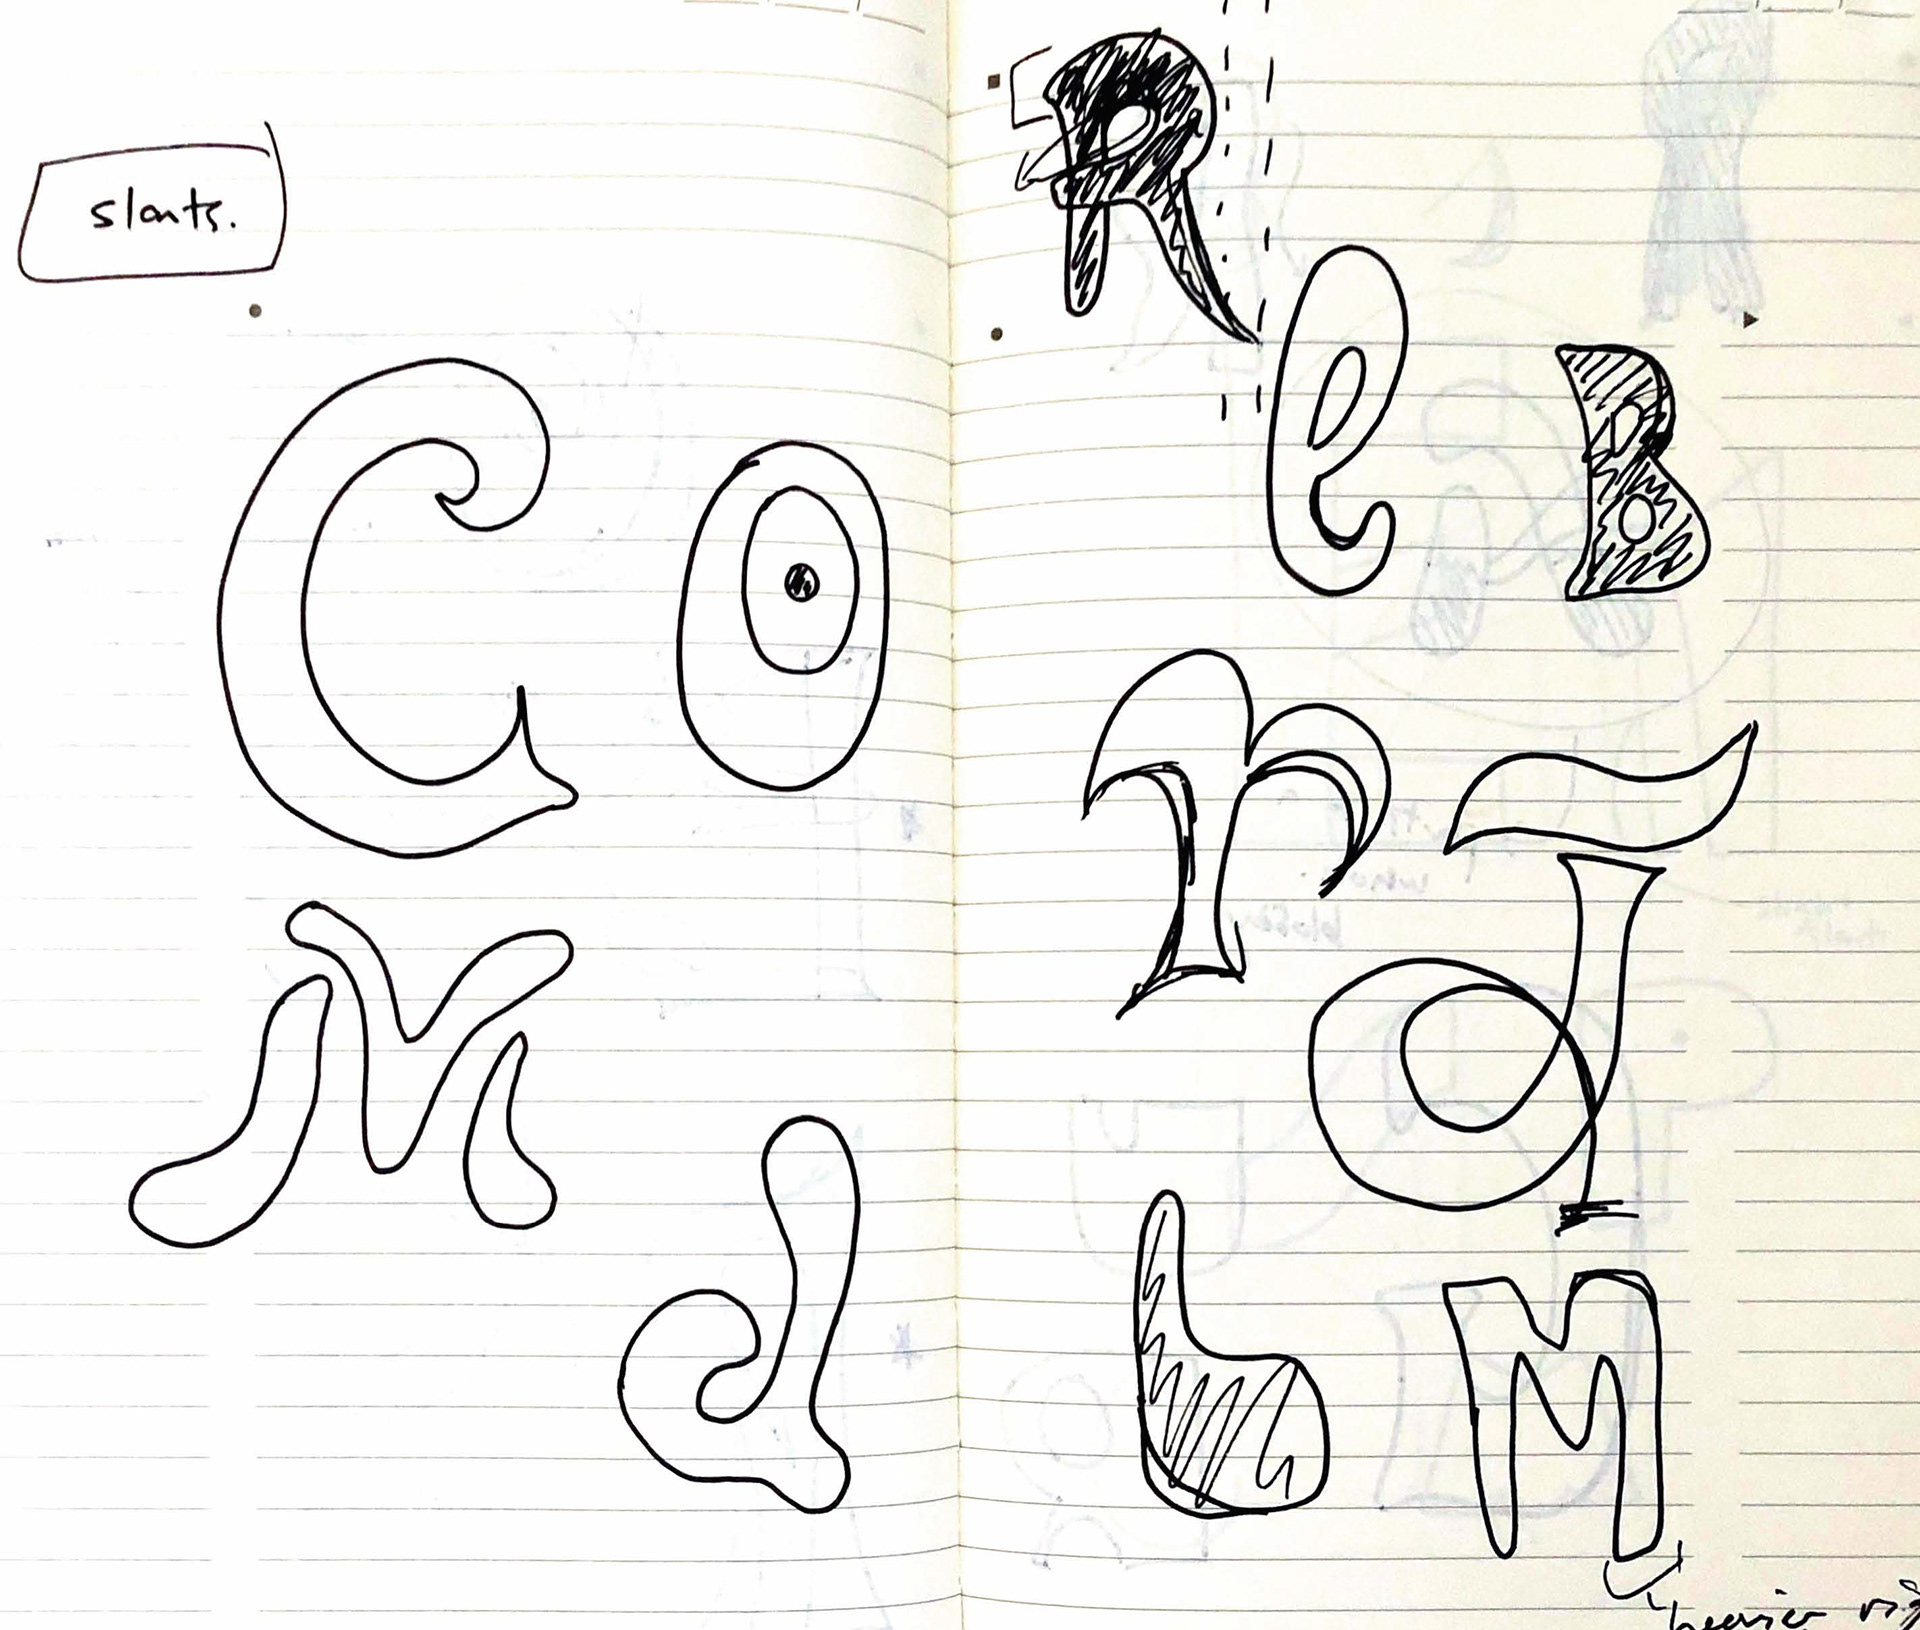 slants.
C O
M
d
R
e B
r J
d
b M
heavier